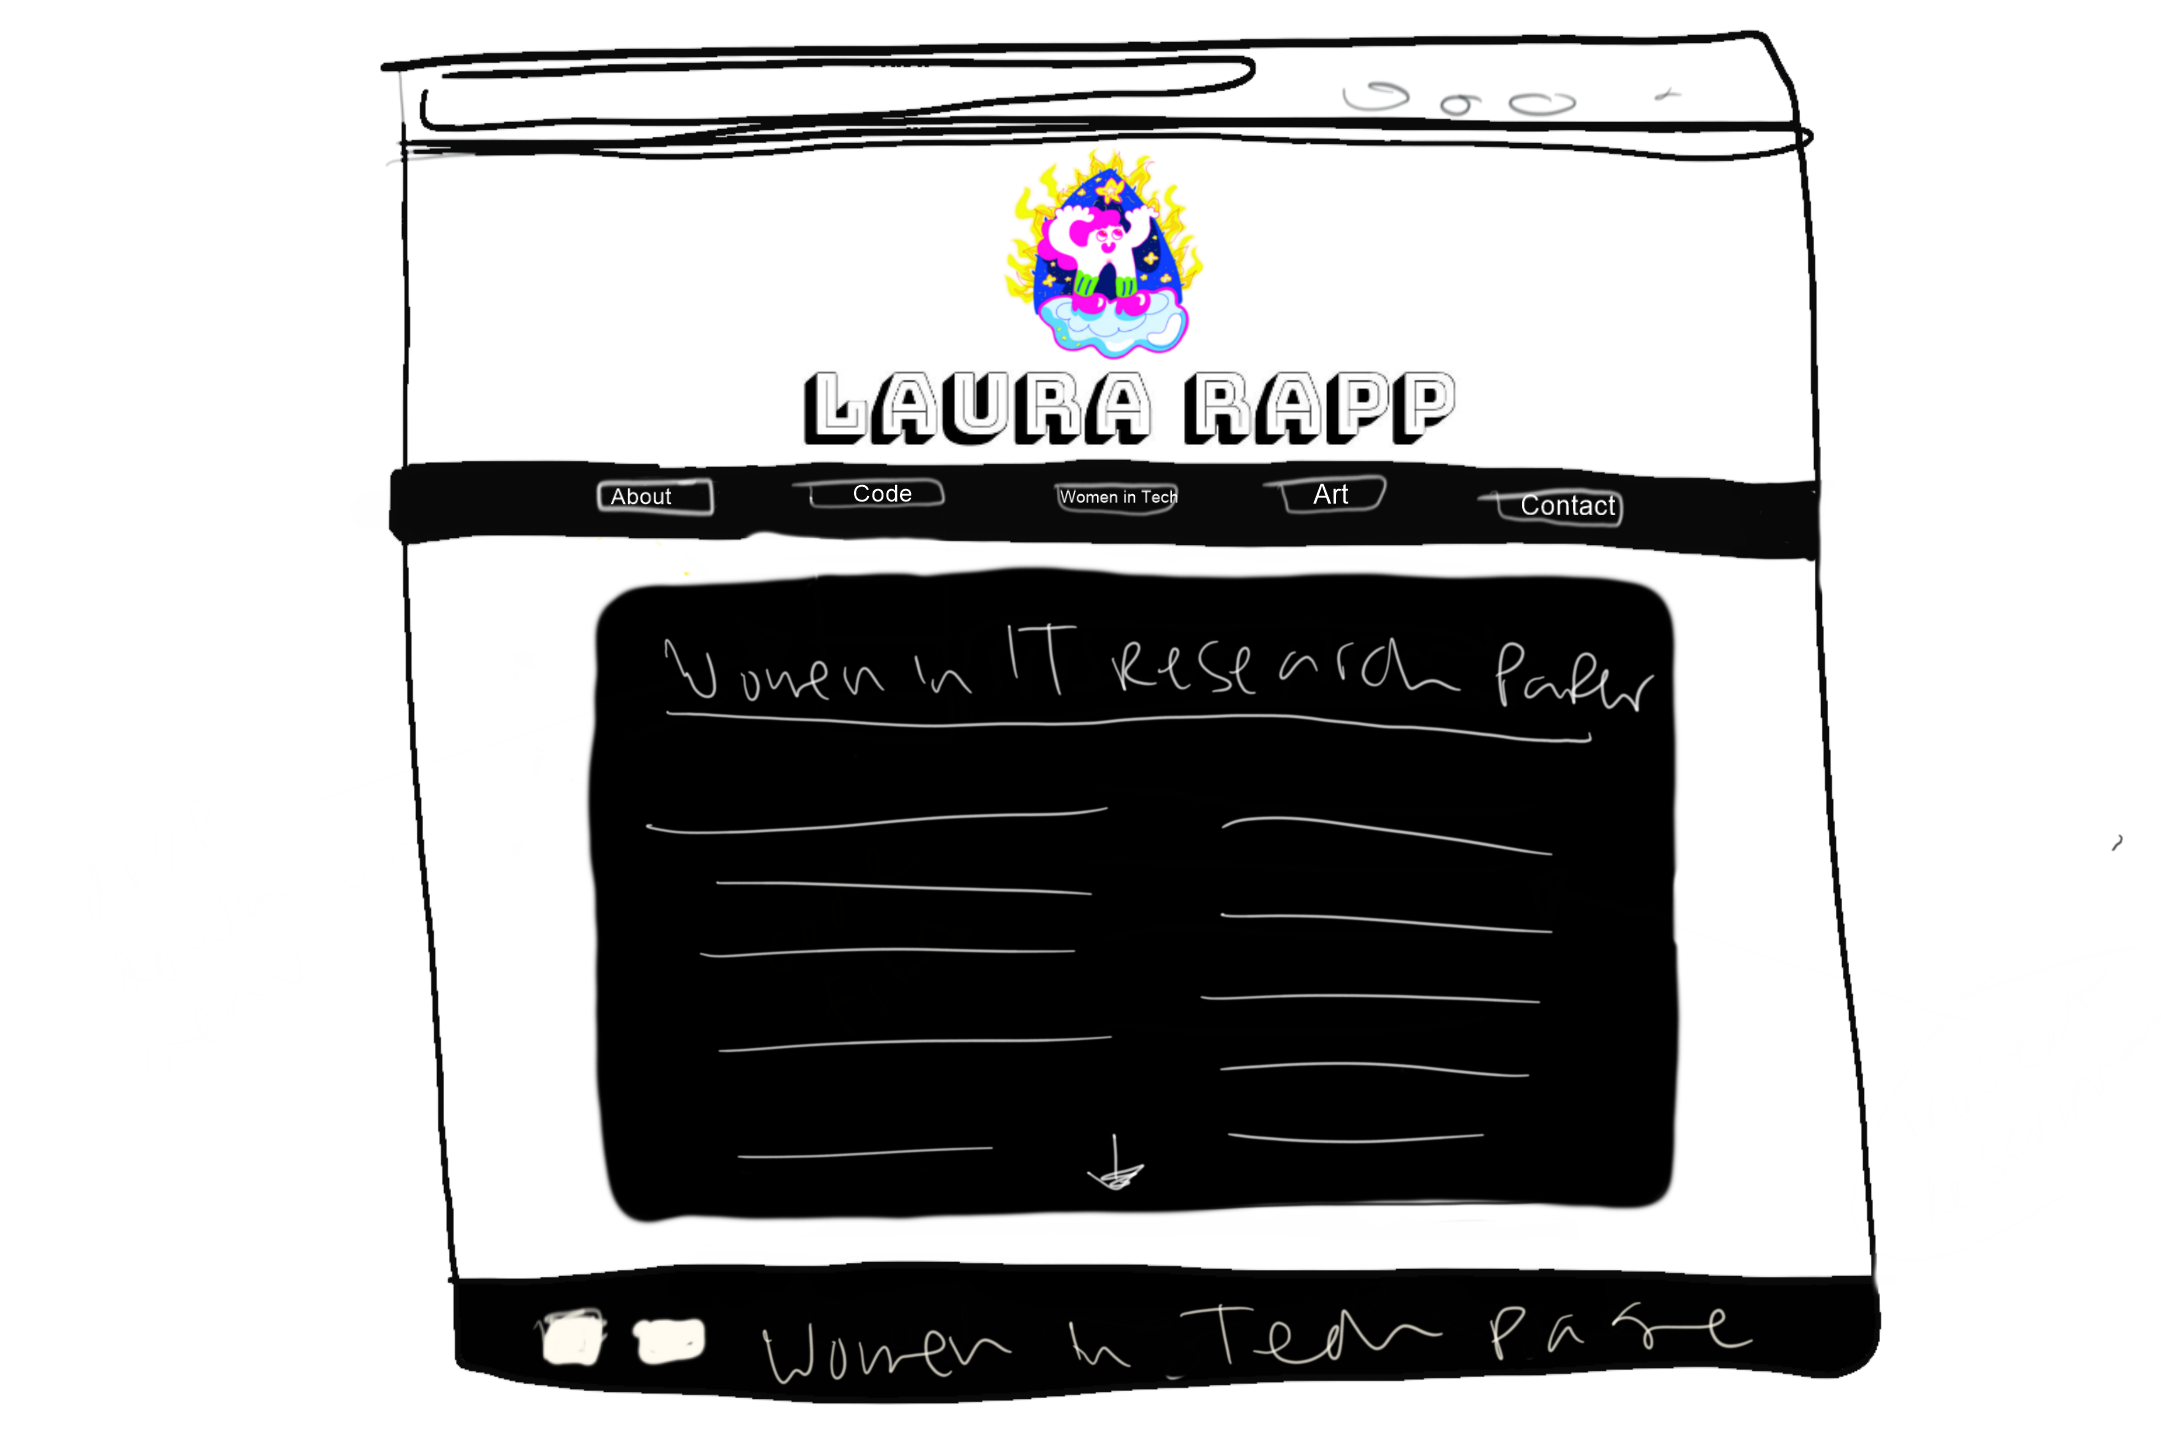 LAURA RAPP
About Code Women in Tech Art Contact
Women in IT Research Paper
Women in Tech Page